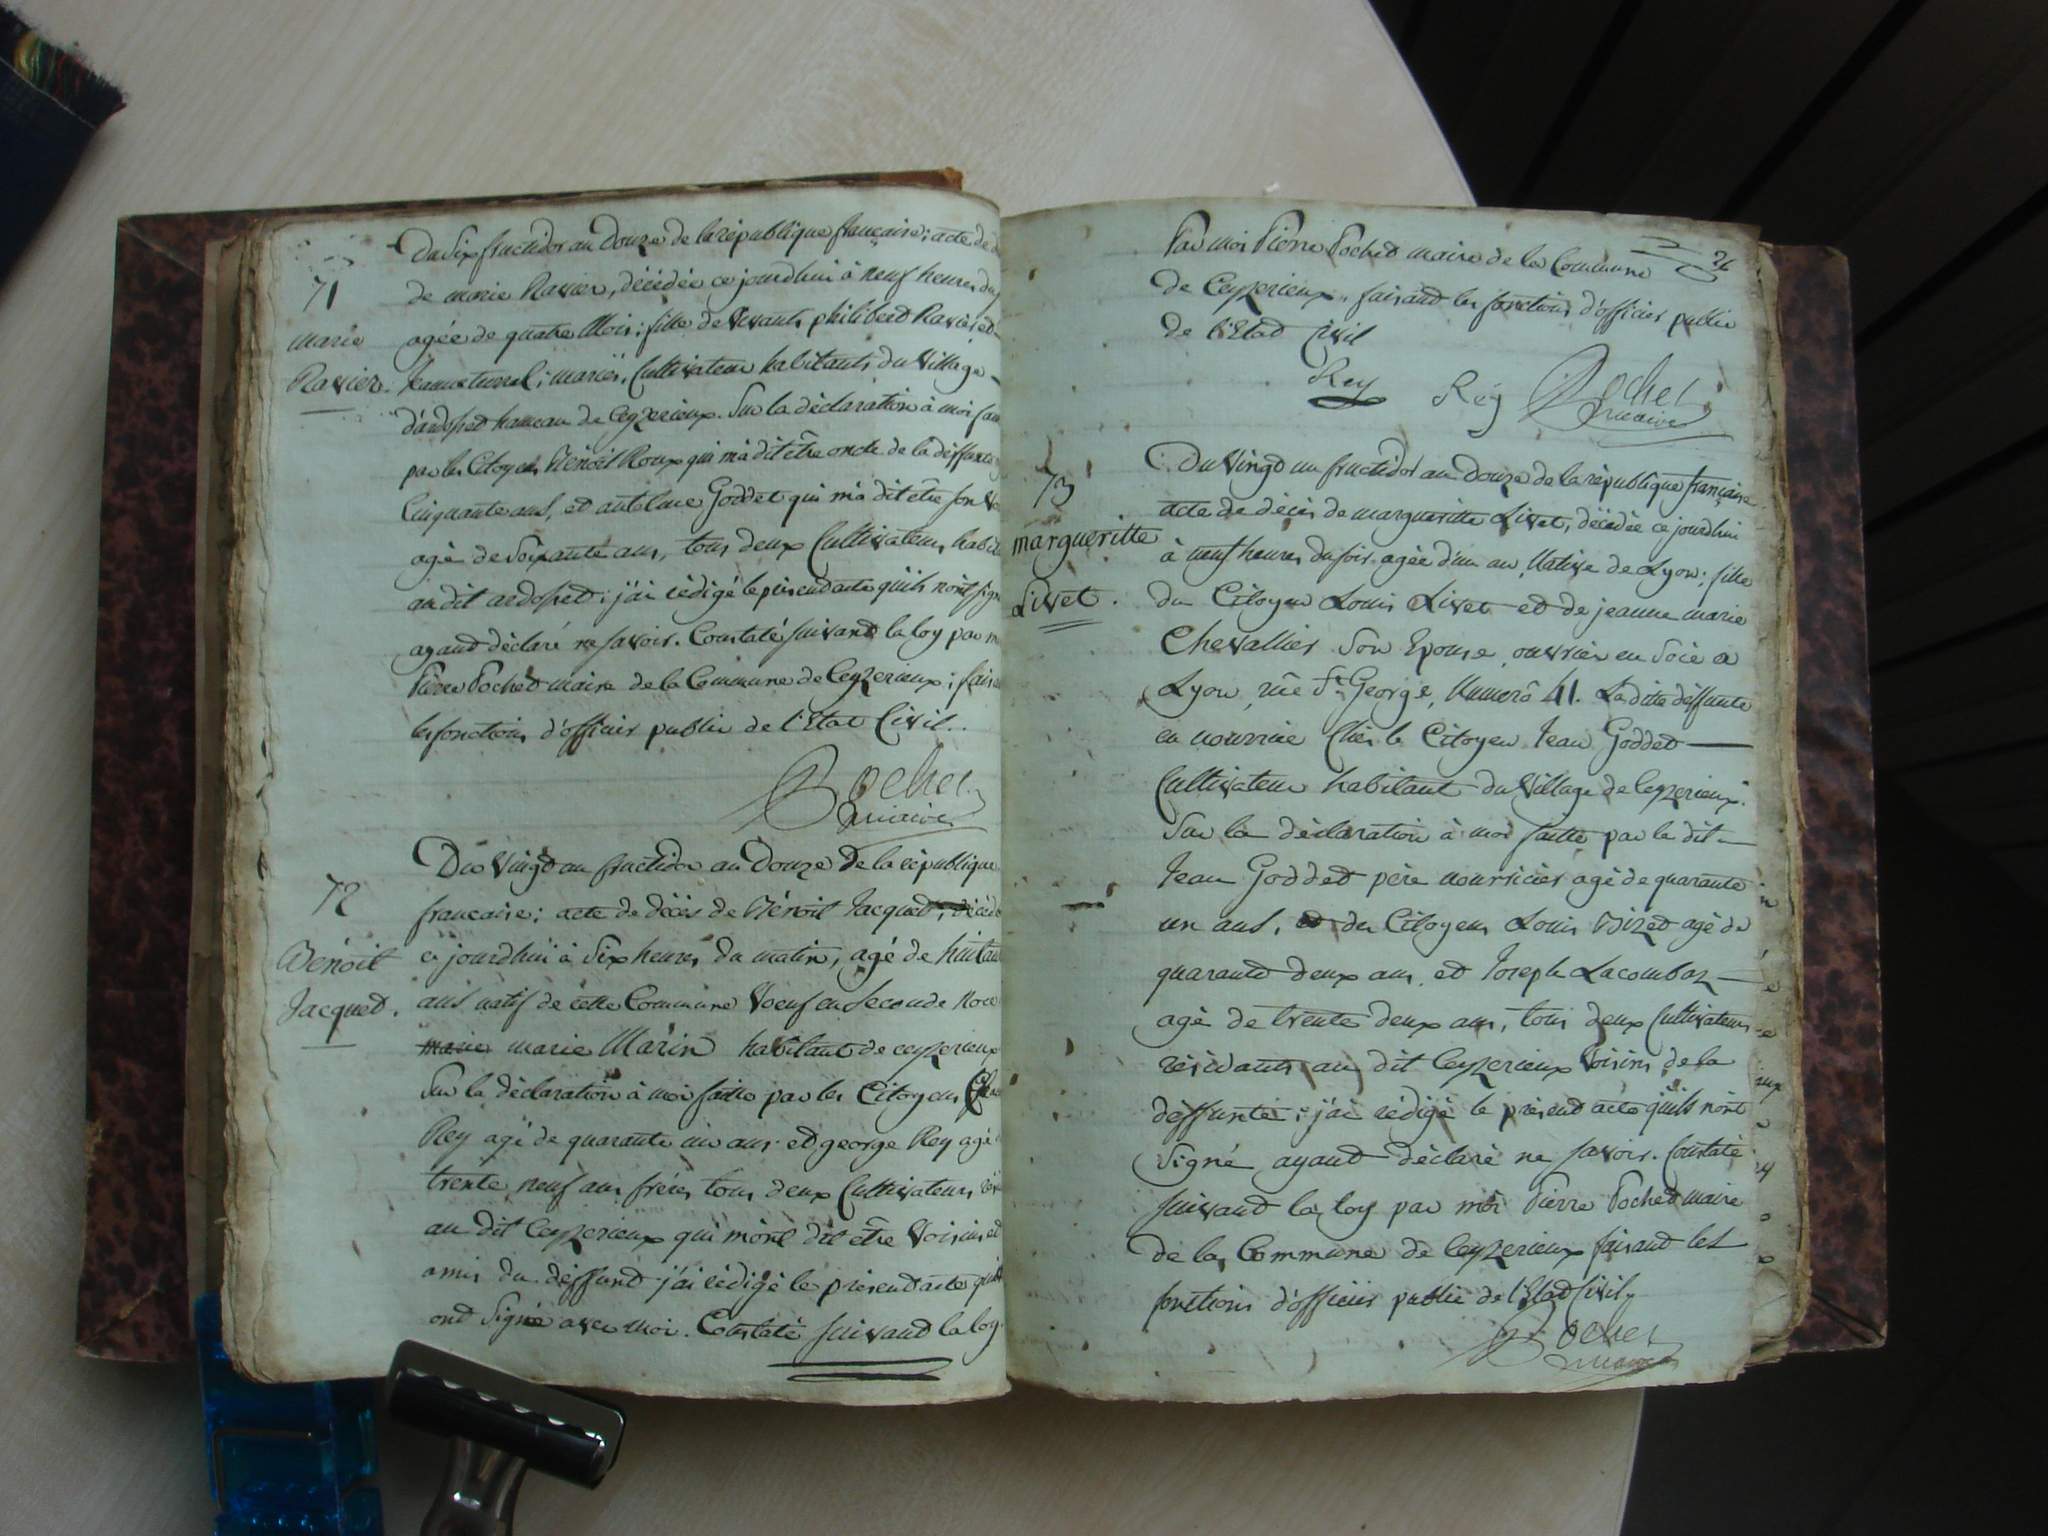 Du Six fructidor an Douze de la république française; acte de
71
de marie Ravier, décédée ce jourdhui à neuf heures du
marie
agée de quatre Mois; fille de vivants philiberd Ravier et
Ravier.
mariés, Cultivateur habitants du Village
hameau de Ceyzerieux. Sur la déclaration à moi
par les Citoyens Bénoit Roux qui m'a dit être oncle de la deffunte
Cinquante ans, et antelme Goddet qui m'a dit être son
agé de Soixante ans, tous deux Cultivateurs
au dit ardosset; j'ai rédigé le présend acte qu'ils n'ont
ayand déclaré ne savoir. Constaté suivand la loy par
Pierre Pochet maire de la Commune de Ceyzerieux;
les fonctions d'officier public de l'Etat Civil..
Pochet
maire
Du Vingt un fructidor an Douze de la république
72
francaise; acte de décès de Bénoit Jacquet,
Bénoit
ce jourdhui à Six heures du matin, agé de
Jacquet.
ans natif de cette Commune Voeuf en Seconde Noce
marie marie Marin habitant de ceyzerieux
Sur la déclaration à moi faitte par les Citoyens
Rey agé de quarante un ans et george Rey agé
trente neuf ans frères tous deux Cultivateurs
au dit Ceyzerieux qui m'ont dit être Voisins et
amis du deffund j'ai rédigé le présend acte
ond Signé avec moi. Constaté suivand la loy.
Par moi Pierre Pochet maire de la Commune
de Ceyzerieux, faisand les fonctions d'officier public
de l'Etad Civil
Rey Rey Pochet
maire
Du Vingt un fructidor an Douze de la république française
73
acte de décès de margueritte Livet, décédée ce jourdhui
margueritte
à neuf heures du soir agée d'un an, Native de Lyon; fille
Livet.
du Citoyen Louis Livet et de jeanne marie
Chevallier Son Epouse, ouvrier en Soie a
Lyon, rüe St George, Numerô 41. La ditte deffunte
en nourrice Chés le Citoyen Jean Godded
Cultivateur habitant du Village de Ceyzerieux.
Sur la déclaration à moi faitte par le dit
Jean Godded père nourricier agé de quarante
un ans, et du Citoyen Louis Bized agé de
quarante deux ans, et Joseph Lacombaz
agé de trente deux ans, tous deux Cultivateurs
résidants au dit Ceyzerieux Voisins de la
deffunte; j'ai rédigé le présend acte qu'ils n'ont
Signé ayand déclaré ne savoir. Constaté
suivand la loy par moi Pierre Pochet maire
de la Commune de Ceyzerieux faisand les
fonctions d'officier public de l'Etad Civil
Pochet
maire